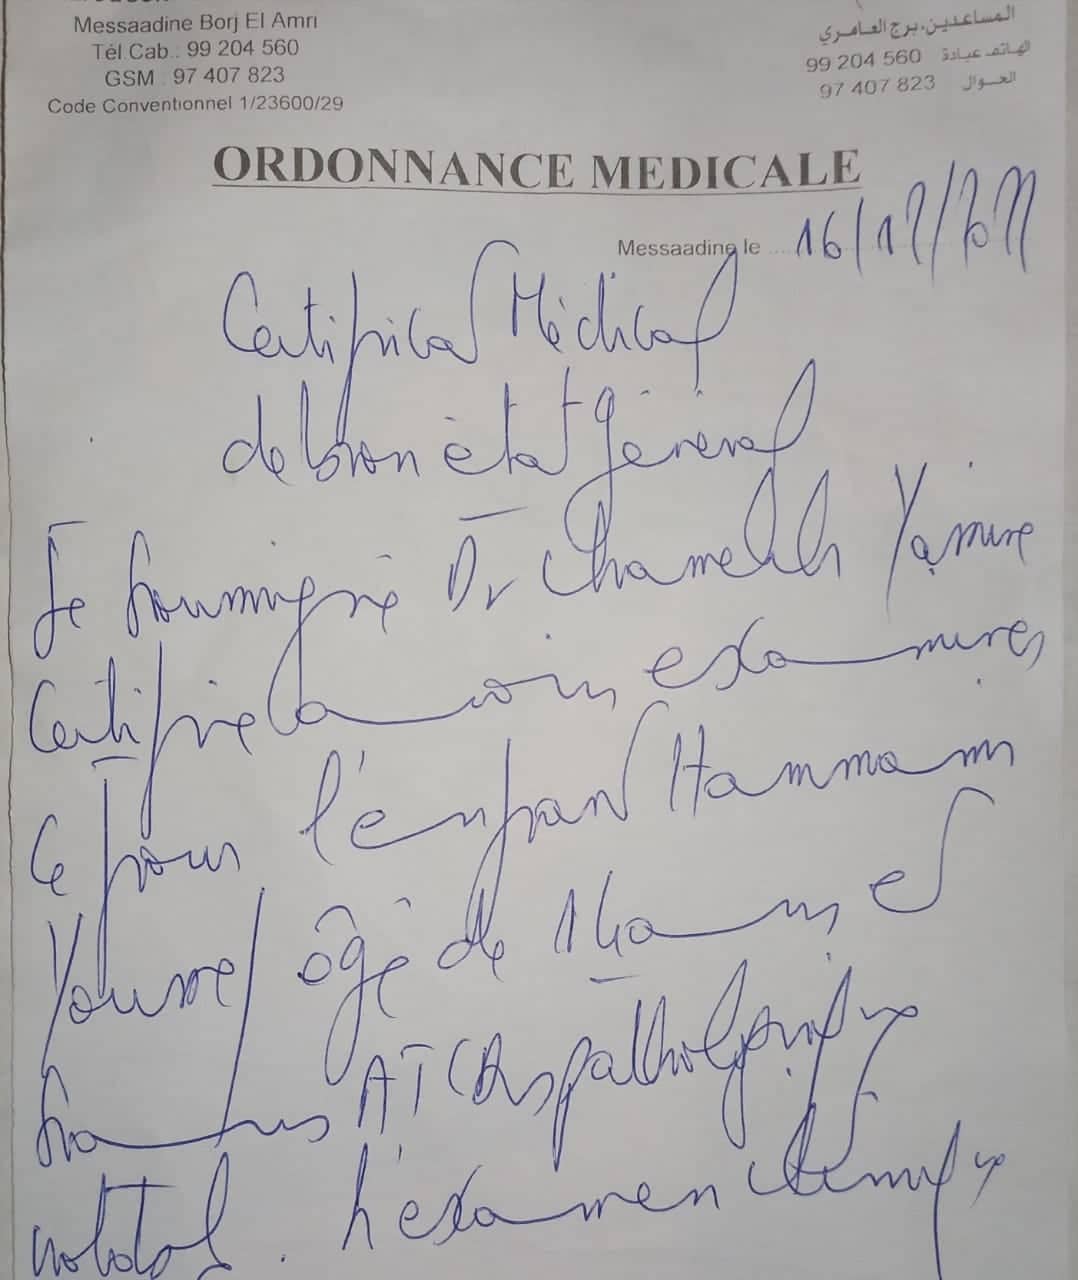 Messaadine Borj El Amri
Tél Cab.: 99 204 560
GSM : 97 407 823
Code Conventionnel 1/23600/29
المساعدين، برج العامري
الهاتف عيادة 99 204 560
الجوال 97 407 823
ORDONNANCE MEDICALE
Messaadine le 16/12/2022
Certificat Médical
de bon état général
Je soussigné Dr Chamekh Yamine
Certifie avoir examiné
ce jour l'enfant Hammami
Youssef âgé de 14 ans et
sans ATCDs pathologiques
notable. L'examen clinique